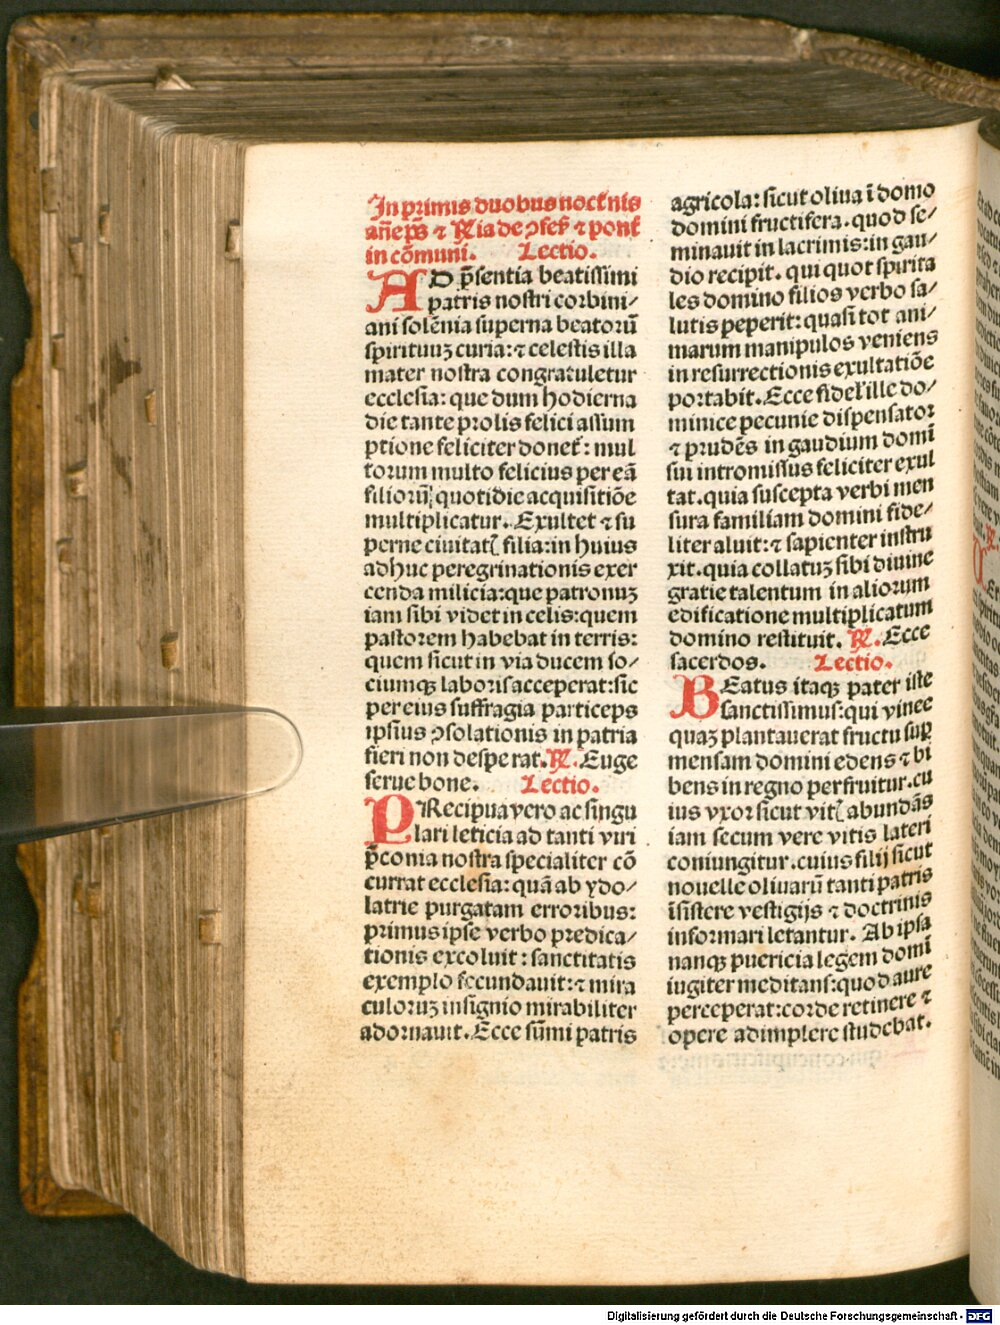 In primis duobus noct̄nis
añe ps̄ ⁊ R̃ia de ꝯfes̄ ⁊ pont̄
in cōmuni. Lectio.
AD p̄sentia beatissimi
patris nostri corbini-
ani solēnia superna beatorū
spirituuʒ curia: ⁊ celestis illa
mater nostra congratuletur
ecclesia: que dum hodierna
die tante prolis felici assum
ptione feliciter donet̄: mul
torum multo felicius per eā
filiorū quotidie acquisitiōe
multiplicatur. Exultet ⁊ su
perne ciuitatꝭ filia: in huius
adhuc peregrinationis exer
cenda milicia: que patronuʒ
iam sibi videt in celis: quem
pastorem habebat in terris:
quem sicut in via ducem so/
ciumqʒ laboris acceperat: sic
per eius suffragia particeps
ipsius ꝯsolationis in patria
fieri non desperat. R̃. Euge
serue bone. Lectio.
PRecipua vero ac singu
lari leticia ad tanti viri
p̄conia nostra specialiter cō
currat ecclesia: quā ab ydo/
latrie purgatam erroribus:
primus ipse verbo predica/
tionis excoluit: sanctitatis
exemplo fecundauit: ⁊ mira
culoruʒ insignio mirabiliter
adornauit. Ecce sūmi patris
agricola: sicut oliua ī domo
domini fructifera. quod se/
minauit in lacrimis: in gau/
dio recipit. qui quot spirita
les domino filios verbo sa/
lutis peperit: quasi tot ani/
marum manipulos veniens
in resurrectionis exultatiōe
portabit. Ecce fidel̄ ille do/
minice pecunie dispensator
⁊ prudēs in gaudium domī
sui intromissus feliciter exul
tat. quia suscepta verbi men
sura familiam domini fide/
liter aluit: ⁊ sapienter instru
xit. quia collatuʒ sibi diuine
gratie talentum in aliorum
edificatione multiplicatum
domino restituit. R̃. Ecce
sacerdos. Lectio.
BEatus itaqʒ pater iste
sanctissimus: qui vinee
quaʒ plantauerat fructu sup̄
mensam domini edens ⁊ bi
bens in regno perfruitur. cu
ius vxor sicut vitꝭ abundās
iam secum vere vitis lateri
coniungitur. cuius filij sicut
nouelle oliuarū tanti patris
īsistere vestigijs ⁊ doctrinis
informari letantur. Ab ipsa
nanqʒ puericia legem domī
iugiter meditans: quod aure
perceperat: corde retinere ⁊
opere adimplere studebat.
Digitalisierung gefördert durch die Deutsche Forschungsgemeinschaft - DFG